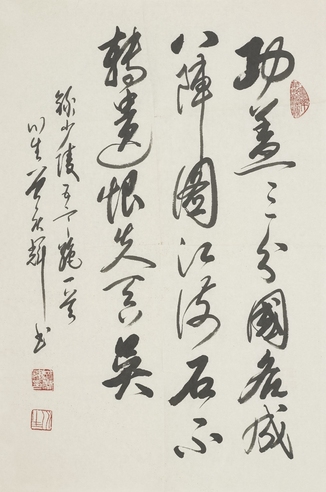 功蓋三分國名成
八陣圖江流石不
轉遺恨失吞吳
錄少陵五言絕一首
生 輝書